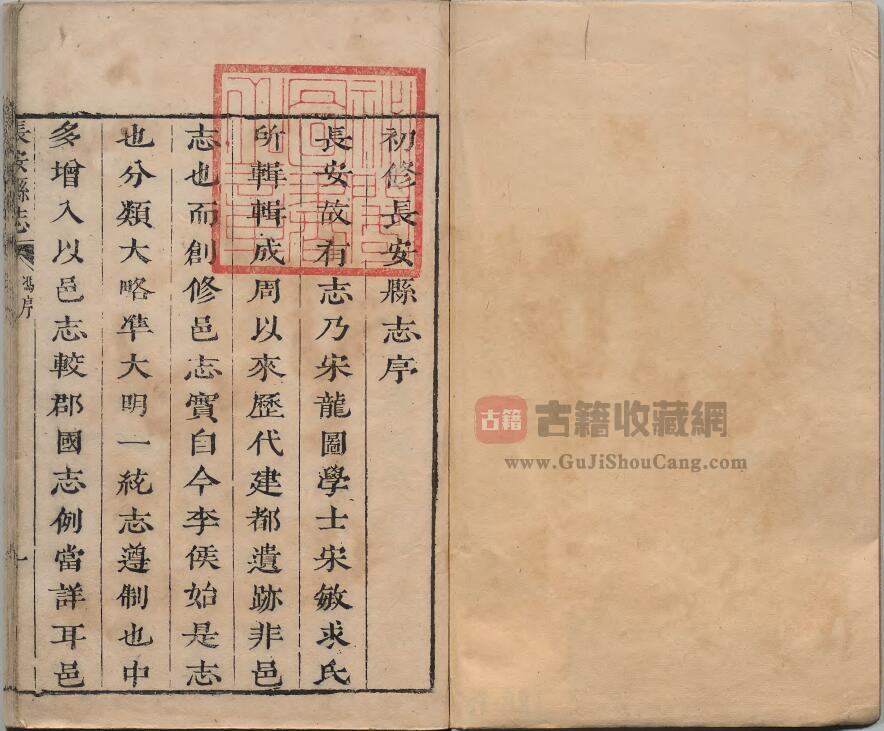 初修長安縣志序
長安故有志乃宋龍圖學士宋敏求氏
所輯輯成周以來歷代建都遺跡非邑
志也而創修邑志實自今李侯始是志
也分類大略准大明一統志遵制也中
多增入以邑志較郡國志例當詳耳邑
長安縣志
馮序
一
古籍
古籍收藏網
www.GuJiShouCang.com